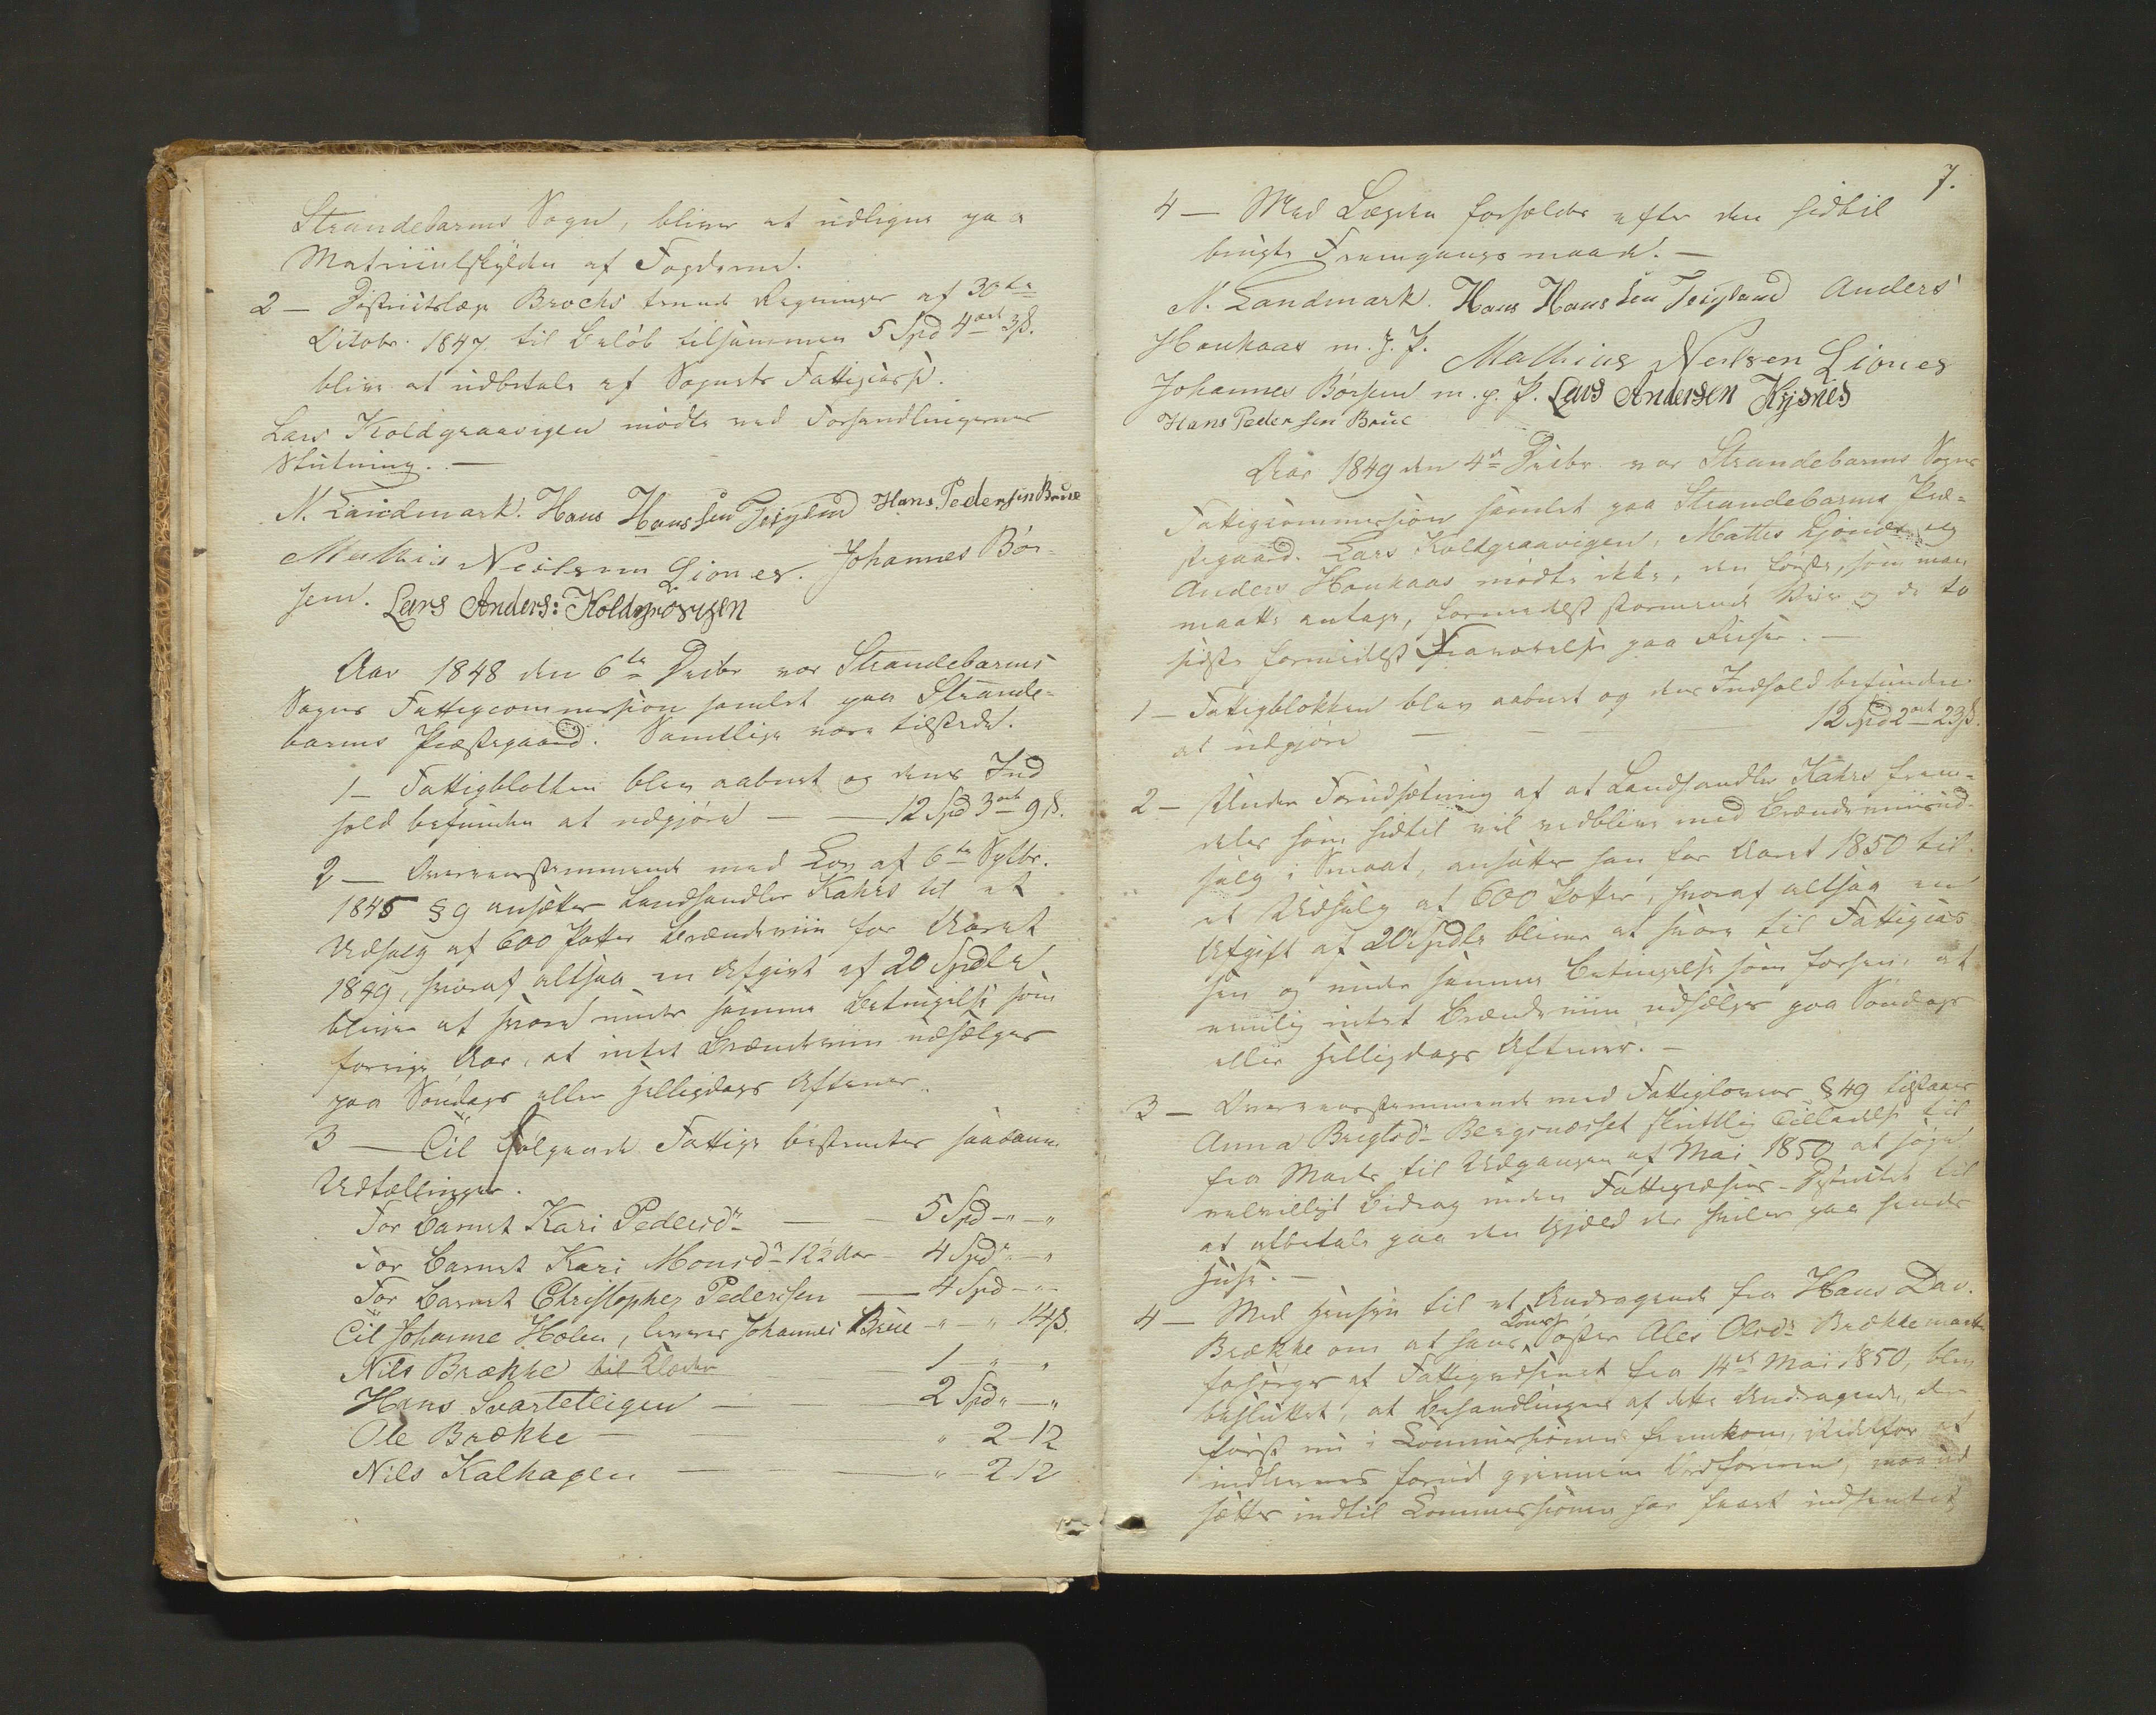 Strandebarms Sogn, bliver at udligne paa
Matriculskylden af Fogderne.
2 — Districtslæge Brochs trende Regninger af 30te
Octobr. 1847 til Beløb tilsammen 5 Spd 4 ort 3 ß.
bliver at udbetale af Sognets Fattigcasse.
Lars Koldgraavigen mødte ved Forhandlingernes
Slutning. —
N. Landmark. Hans Hanssen Teigland Hans Pedersen Brüe
Mathis Neilsen Liones. Johannes Bør-
sem. Lars Anders: Koldgrovigen
Aar 1848 den 6te Decbr var Strandebarms
Sogns Fattigcommission samlet paa Strande-
barms Præstegaard. Samtlige vare tilstede.
1 — Fattigblokken blev aabnet og dens Ind
hold befunden at udgjøre — 12 Spd 3 ort 9 ß.
2 — Overeensstemmende med Lov af 6te Sptbr.
1845 § 9 ansættes Landhandler Kahrs til et
Udsalg af 600 Potter Brændeviin for Aaret
1849, hvoraf altsaa en Afgivt af 20 Spdlr
bliver at svare under samme Betingelse som
forrige Aar, at intet Brændeviin udsælges
paa Søndags eller Helligdags Aftener.
3 — Til følgende Fattige bestemtes saadanne
Udtællinger.
For Barnet Kari Pedersdr — 5 Spd " — "
For Barnet Kari Monsdr 12½ Aar — 4 Spd " — "
For Barnet Christopher Pedersen — 4 Spd — " —
Til Johanne Holen, leverer Johannes Brüe " — " 14 ß.
Nils Brække til Klæder 1 " "
Hans Svarteteigen — 2 Spd " — "
Ole Brække — " 2 — 12
Nils Kalhagen — " — 2 12
7.
4 — Med Lægden forholdes efter den hidtil
brugte Fremgangsmaade. —
N. Landmark. Hans Hanssen Teigland Anders
Haukaas m. p. P. Mathius Neilsen Liones
Johannes Børsem m. p. P. Lars Andersen Kysnes
Hans Pedersen Brüe
Aar 1849 den 4de Decbr var Strandebarms Sogns
Fattigcommission samlet paa Strandebarms Præ-
stegaard. Lars Koldgraavigen, Mattis Ljones og
Anders Haukaas mødte ikke, den første, som man
maatte antage, formedelst stormende Veir og de to
sidste formedelst Fraværelse paa Reiser. —
1 — Fattigblokken blev aabnet og dens Indhold befunden
at udgjøre — 12 Spd 2 ort 23 ß.
2 — Under Forudsætning af at Landhandler Kahrs frem-
deles som hidtil vil vedblive med Brændeviinsud-
salg i Smaat, ansættes han for Aaret 1850 til
et Udsalg af 600 Potter, hvoraf altsaa en
Afgift af 20 Spdlr bliver at svare til Fattigcas
sen og under samme Betingelse som forhen, at
nemlig intet Brændeviin udsælges paa Søndags
eller Helligdags Aftener. —
3 — Overeensstemmende med Fattiglovens § 49 tilstaaes
Anna Brigtsdr Bergenæsset skriftlig Tilladelse til
fra Marts til Udgangen af Mai 1850 at søge
velvilligt Bidrag inden Fattigvæsens-Districtet til
at afbetale paa den Gjæld der hviler paa hendes
Huse. —
4 — Med Hensyn til et Andragende fra Hans Dav.
Brække om at hans Kones Søster Ales Olsdr Brække maatte
forsørges af Fattigvæsenet fra 14de Mai 1850, blev
besluttet, at Behandlingen af dette Andragende, der
først nu i Commissionen fremkom, istedetfor at
indleveres forud gjennem Ordføreren, maa ud
sættes indtil Commissionen har faaet indhentet